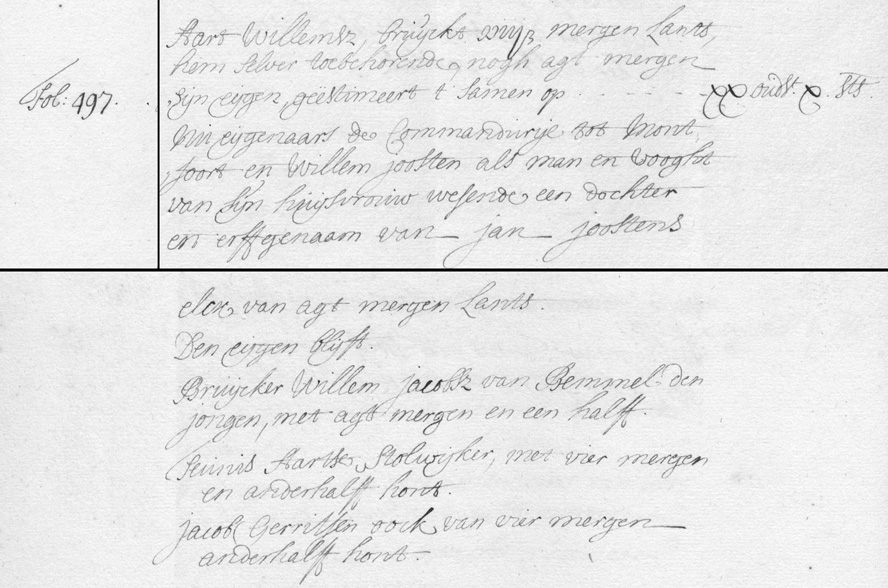 Aart Willemsz, bruyckt xviij½ mergen Lants,
hem selver toebehorende, nogh agt mergen
Fol: 497. sijn eygen, geëstimeert t samen op - - - - XX oudst. X. sts
Nu eygenaars de Commandurije tot Mont,
foort en Willem joosten als man en vooght
van sijn huijsvrouw wesende een dochter
en erffgenaam van jan joostens
elck van agt mergen Lants.
Den eygen blijft.
Bruijcker Willem jacobsz van Bemmel den
jongen, met agt mergen en een halff.
Teunis Aartse Stolwijker, met vier mergen
en anderhalff hont.
jacob Gerritsen oock van vier mergen
anderhalff hont.